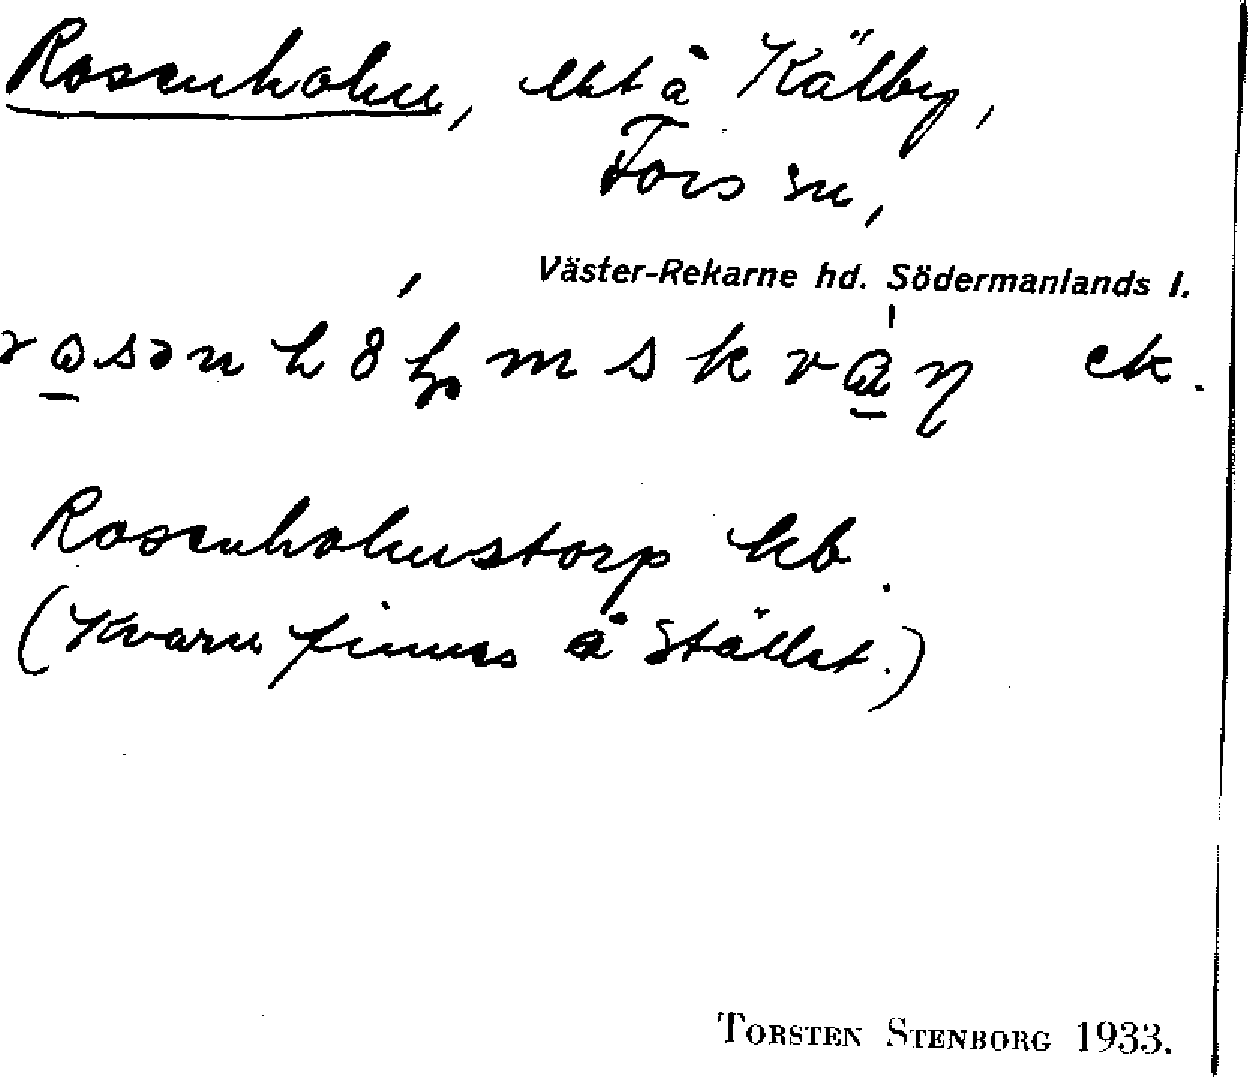 Rosenholm, lht å Kälby,
Fors sn,
Väster-Rekarne hd. Södermanlands l.
ek.
Rosenholmstorp kb.
(Kvarn finnes å stället.)
TORSTEN STENBORG 1933.